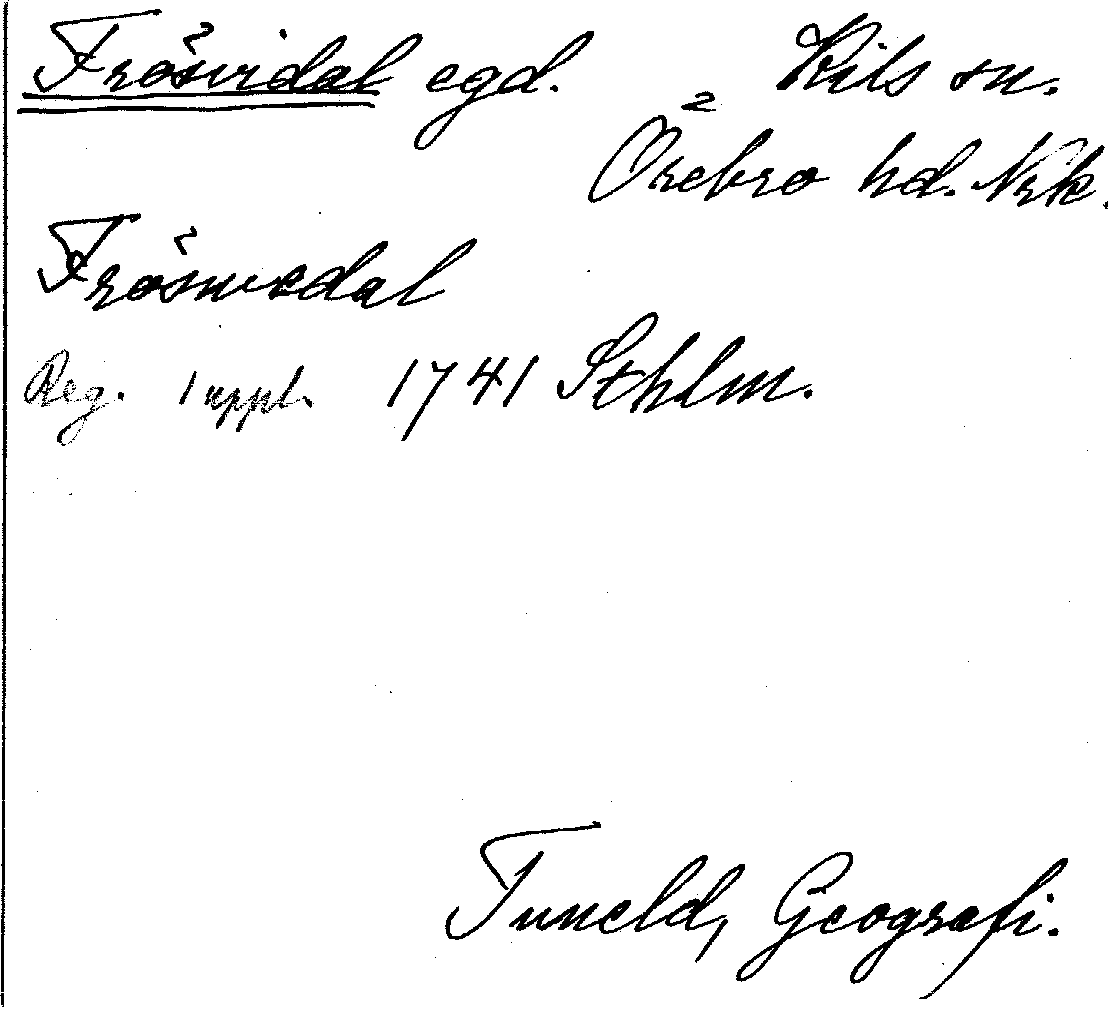 Frösvidal egd. Kils sn.
Örebro hd. Nrk.
Frösvedal
Reg. 1 uppl. 1741 Sthlm.
Tuneld, Geografi.